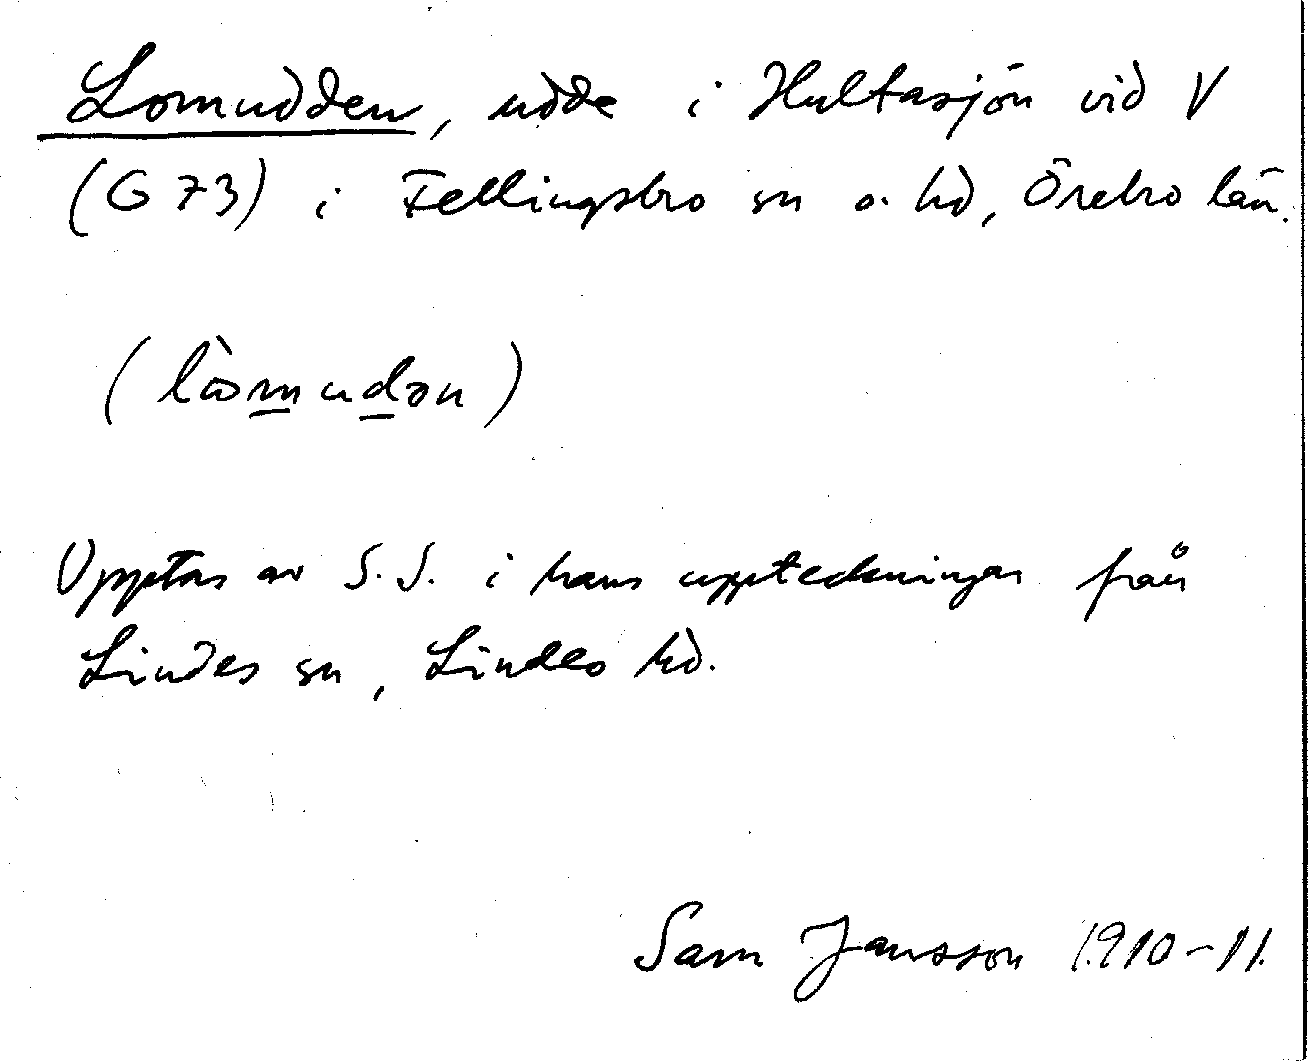 Lomudden, udde i Hultasjön vid V
(G 73) i Fellingsbro sn o. hd, Örebro län.
(lòmudən)
Upptas av S.J. i hans uppteckningar från
Lindes sn, Lindes hd.
Sam Jansson 1910-11.